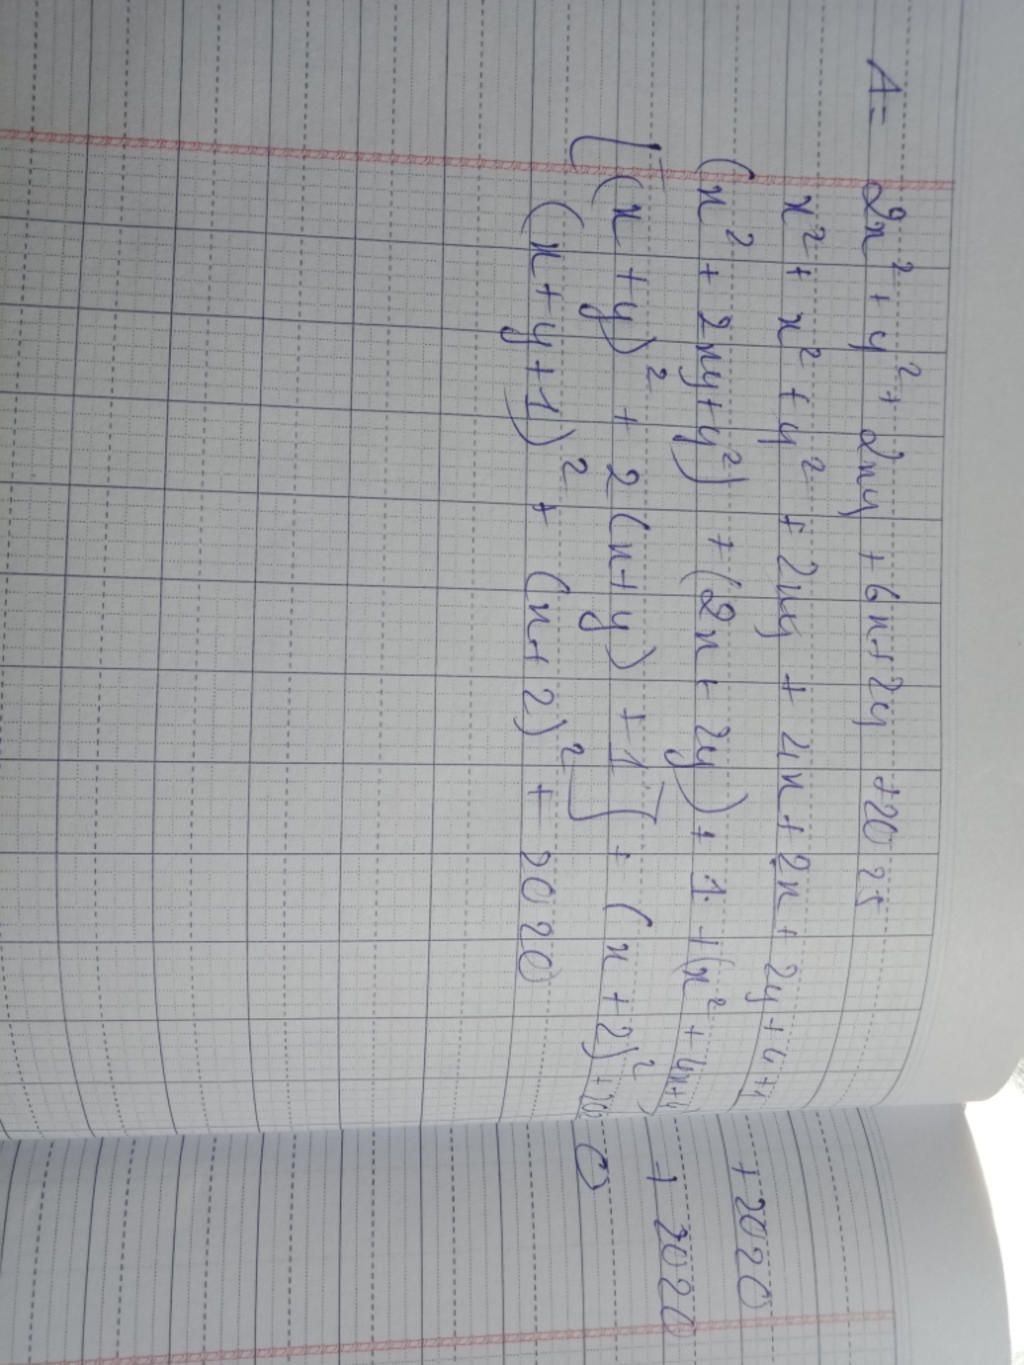 A= 2x² + y² + 2xy + 6x+2y +2025
x² + x² + y² + 2xy + 4x + 2x + 2y + 4 +1 + 2020
(x² + 2xy+y²) + (2x + 2y) + 1 + (x² + 4x+4) + 2020
[(x +y)² + 2(x+y) +1] + (x +2)² + 2020
(x+y+1)² + (x+2)² + 2020